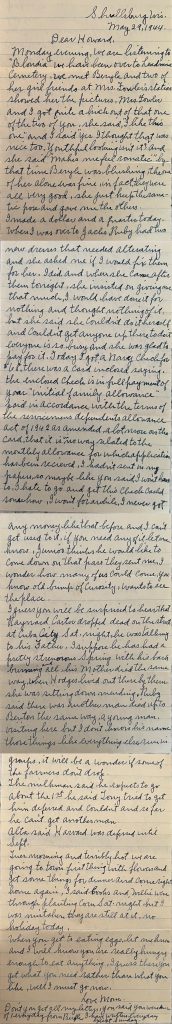 Shullsburg, Wis.
May 29, 1944.
Dear Howard,
Monday evening, we are listening to
"Blondie" we have been over to
Cemetery. We met Beryle and two of
her girl friends at Mrs. Fowler's later
showed her the pictures. Mrs. Fowler
and I got quite a kick out of that one
of the two of you she said "I like this
one" and I said "yes I thought that was
nice too. Youthful looking isn't it? and
she said "Makes me feel romantic" by
that time Beryle was blushing. The one
of her alone was fine in fact they were
all very good. she just kept the same
two you had gave me the other
I made a dollar and a practice today.
When I was over to Jackie's Ruby had two
new dresses that needed alterating
and she asked me if I would fix them
for her. I did and when she came after
them tonight, she insisted on giving me
that much, I would have done it for
nothing and thought nothing of it.
but she said she couldn't do it herself
and couldn't get anyone up there to do it
everyone is so busy and she was glad to
pay for it. Today I got a Navy Check for
there was a card inclosed saying.
the enclosed check is in full payment of
your "initial family allowance
paid in accordance with the terms of
the servicemen's dependents allowance
act of 1942 as amended, a lot more on the
card, that it in no way related to the
monthly allowance for which application
has been received, I hadn't sent in my
papers so maybe like you said I won't have
to. I hate to go and get this check cashed
somehow, I won't for awhile, I never got
any money like that before and I can't
get used to it. if you need any of it let me
know. Junior thinks he would like to
come down on that pass they sent me. I
wonder how many of us could come, you
know old bump of curiosity, I want to see
the place.
I guess you will be surprised to hear that
Hayward Carter dropped dead on the street
at Cuba City Sat. night, he was talking
to his Father. I suppose he has had a
pretty strenuous Spring with his back
Mother died the same
way, when Hodges lived out there by them
she was sitting down mending. Ruby
said there was another man died up to
Benton the same way, a young man
visiting here but I don't know his name
those things like everything else run in
groups, it will be a wonder if some of
the farmers don't drop.
The mailman said he expects to go
about the 1st he said Tony tried to get
him defered and couldn't and so far
he can't get another man.
Alta said Harvard was defered until
Sept.
Tues. morning and terribly hot we are
going to town first thing with flowers and
get some things for dinner and come right
home again, I said Cooks and Willie were
through planting corn Sat. night but I
was mistaken they are still at it, no
holiday today.
When you get to eating eggs let me hear
and I will know you are really hungry
enough to eat anything. I guess there you
get what you need rather than what you
like. Well I must go now.
Love Mom.